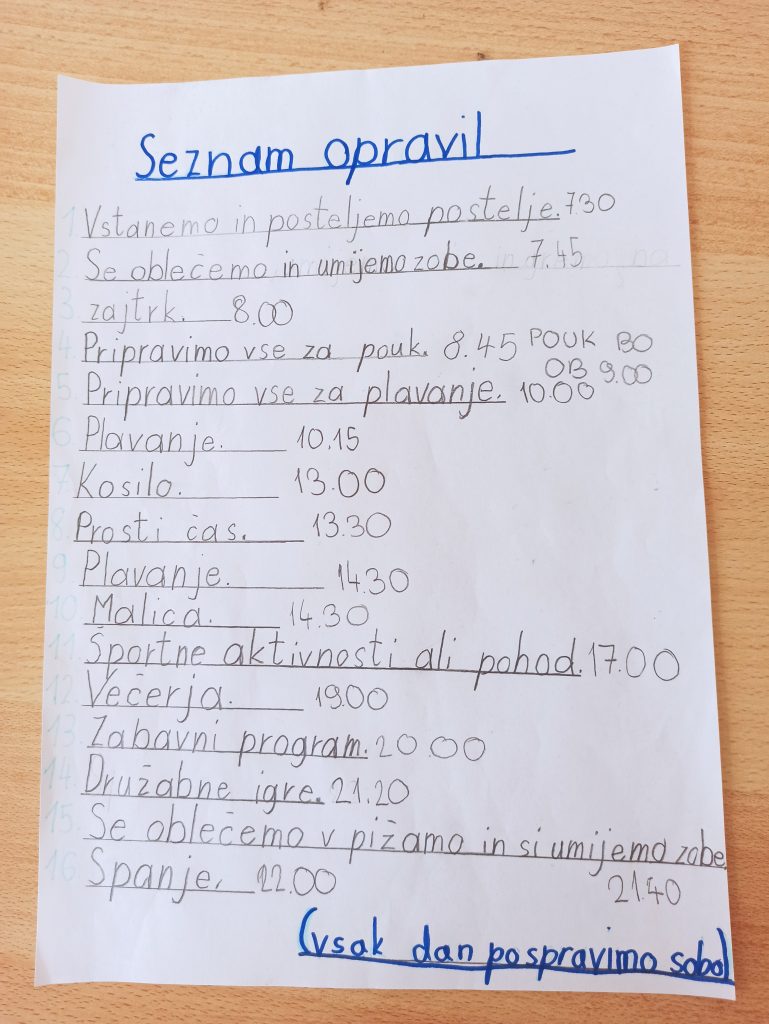 Seznam opravil
1. Vstanemo in posteljemo postelje. 7.30
2. Se oblečemo in umijemo zobe. 7.45
3. zajtrk. 8.00
4. Pripravimo vse za pouk. 8.45 POUK BO
OB 9.00
5. Pripravimo vse za plavanje. 10.00
6. Plavanje. 10.15
7. Kosilo. 13.00
8. Prosti čas. 13.30
9. Plavanje. 14.30
10. Malica. 14.30
11. Športne aktivnosti ali pohod. 17.00
12. Večerja. 19.00
13. Zabavni program. 20.00
14. Družabne igre. 21.20
15. Se oblečemo v pižamo in si umijemo zobe.
21.40
16. Spanje. 22.00
(vsak dan pospravimo sobo)